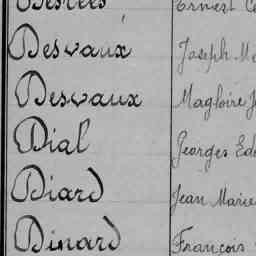 Ernest
Desvaux Joseph
Desvaux Magloire
Dial Georges
Diard Jean Marie
Dinard François